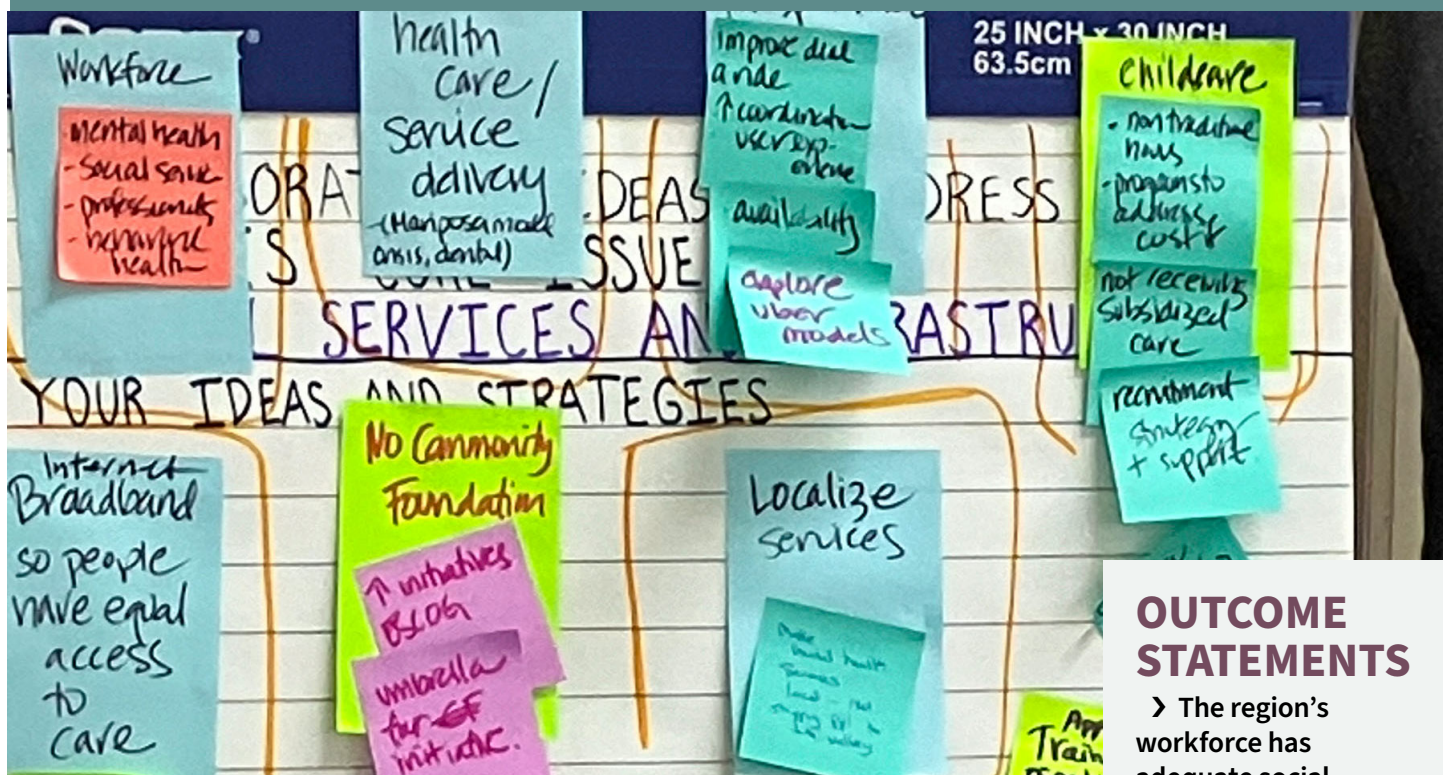 25 INCH x 30 INCH
63.5cm
Workforce
mental health
- social
- professionals
- behavioral
health
health
care/
service
delivery
(Mariposa model
dental)
improve dial
a ride
↑ coordination
user exp-
erience
availability
explore
uber
models
childcare
- non traditional
hours
- programs to
address
cost &
not receiving
subsidized
care
recruitment
strategy
+ support
ORA IDEAS DRESS
S ISSUE
SERVICES AN RASTRU
YOUR IDEAS AND STRATEGIES
Internet
Broadband
so people
have equal
access
to
care
No Community
Foundation
↑ initiatives
umbrella
for CF
initiative.
Localize
services
make
mental health
services
local
Train
OUTCOME
STATEMENTS
❯ The region’s
workforce has
adequate social